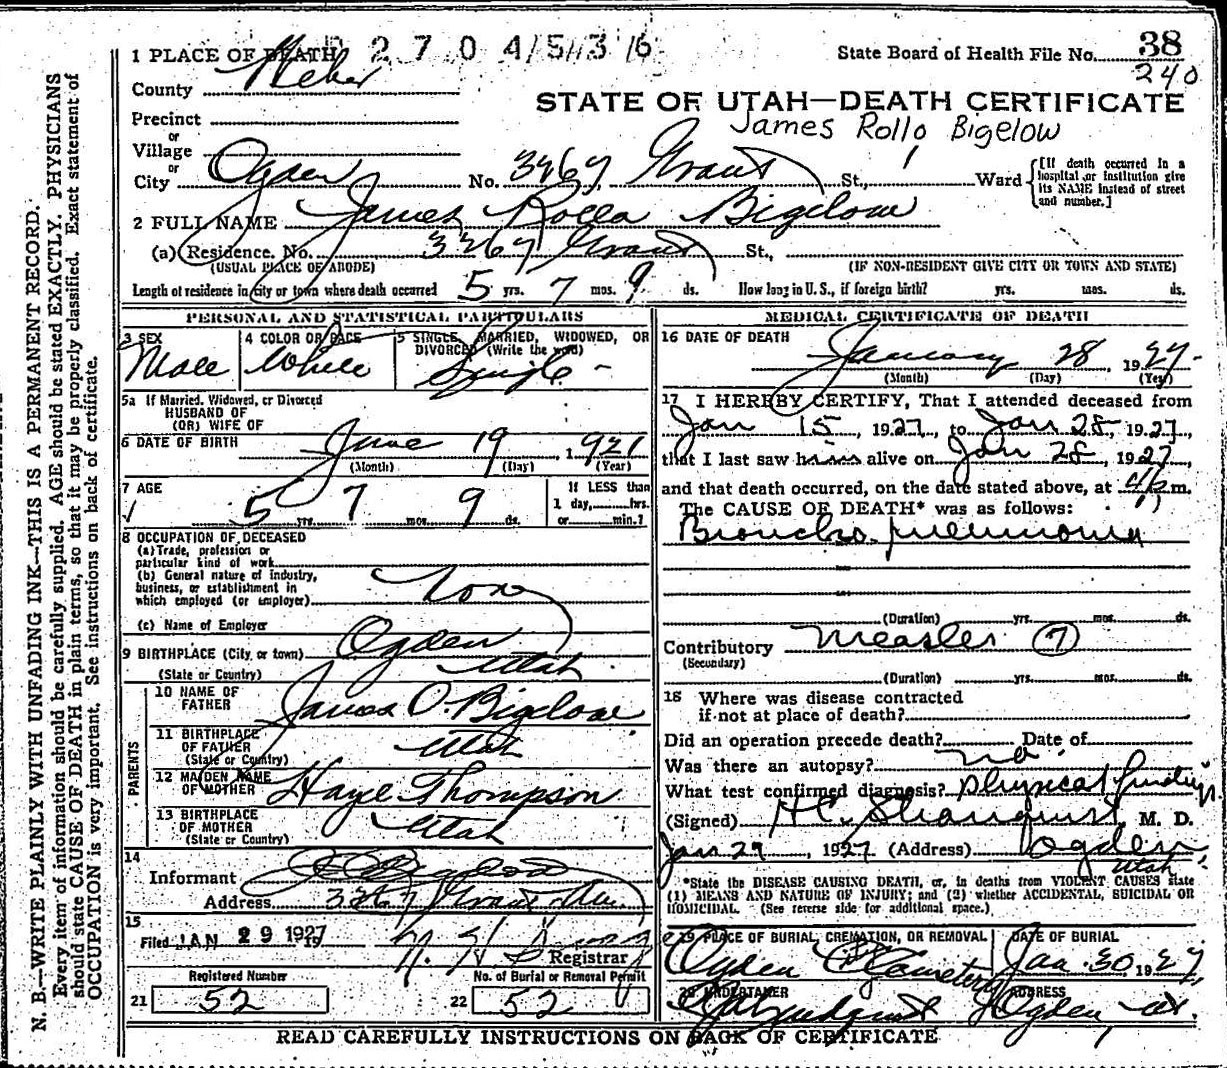 N. B.—WRITE PLAINLY WITH UNFADING INK—THIS IS A PERMANENT RECORD.
Every item of information should be carefully supplied. AGE should be stated EXACTLY. PHYSICIANS
should state CAUSE OF DEATH in plain terms, so that it may be properly classified. Exact statement of
OCCUPATION is very important. See instructions on back of certificate.
1 PLACE OF DEATH
2 7 0 4/5
State Board of Health File No. 38
240
County Weber
STATE OF UTAH—DEATH CERTIFICATE
James Rollo Bigelow
Precinct
or
Village
or
City Ogden No. 3467 Grant St., Ward
[If death occurred in a hospital or institution give its NAME instead of street and number.]
2 FULL NAME James Rolla Bigelow
(a) Residence. No. 3267 Grant St.,
(USUAL PLACE OF ABODE) (IF NON-RESIDENT GIVE CITY OR TOWN AND STATE)
Length of residence in city or town where death occurred 5 yrs. 7 mos. 9 ds. How long in U.S., if foreign birth? yrs. mos. ds.
PERSONAL AND STATISTICAL PARTICULARS
3 SEX Male
4 COLOR OR RACE White
5 SINGLE, MARRIED, WIDOWED, OR DIVORCED (Write the word) Single
5a If Married, Widowed, or Divorced
HUSBAND OF
(OR) WIFE OF
6 DATE OF BIRTH June 19 1921
(Month) (Day) (Year)
7 AGE 5 yrs. 7 mos. 9 ds.
If LESS than
1 day, hrs.
or min.?
8 OCCUPATION OF DECEASED
(a) Trade, profession or
particular kind of work
(b) General nature of industry,
business, or establishment in
which employed (or employer) None
(c) Name of Employer
9 BIRTHPLACE (City or town) Ogden
(State or Country) Utah
PARENTS
10 NAME OF FATHER James O. Bigelow
11 BIRTHPLACE OF FATHER (State or Country) Utah
12 MAIDEN NAME OF MOTHER Thompson
13 BIRTHPLACE OF MOTHER (State or Country) Utah
14
Informant Bigelow
Address 3267 Grant Ave.
15
Filed JAN 29 1927
Registrar
Registered Number
21 52
No. of Burial or Removal Permit
22 52
MEDICAL CERTIFICATE OF DEATH
16 DATE OF DEATH January 28 1927
(Month) (Day) (Year)
17 I HEREBY CERTIFY, That I attended deceased from
Jan 15, 1927, to Jan 28, 1927,
that I last saw him alive on Jan 28, 1927
and that death occurred, on the date stated above, at m.
The CAUSE OF DEATH* was as follows:
Broncho pneumonia
(Duration) yrs. mos. ds.
Contributory Measles 7
(Secondary)
(Duration) yrs. mos. ds.
18 Where was disease contracted
if not at place of death?
Did an operation precede death? Date of
Was there an autopsy? no
What test confirmed diagnosis? physical findings
(Signed) M. D.
Jan 29, 1927 (Address) Ogden, Utah
*State the DISEASE CAUSING DEATH, or, in deaths from VIOLENT CAUSES state
(1) MEANS AND NATURE OF INJURY; and (2) whether ACCIDENTAL, SUICIDAL OR
HOMICIDAL. (See reverse side for additional space.)
19 PLACE OF BURIAL, CREMATION, OR REMOVAL Ogden Cemetery
DATE OF BURIAL Jan. 30 1927
20 UNDERTAKER
ADDRESS Ogden, Ut.
READ CAREFULLY INSTRUCTIONS ON BACK OF CERTIFICATE